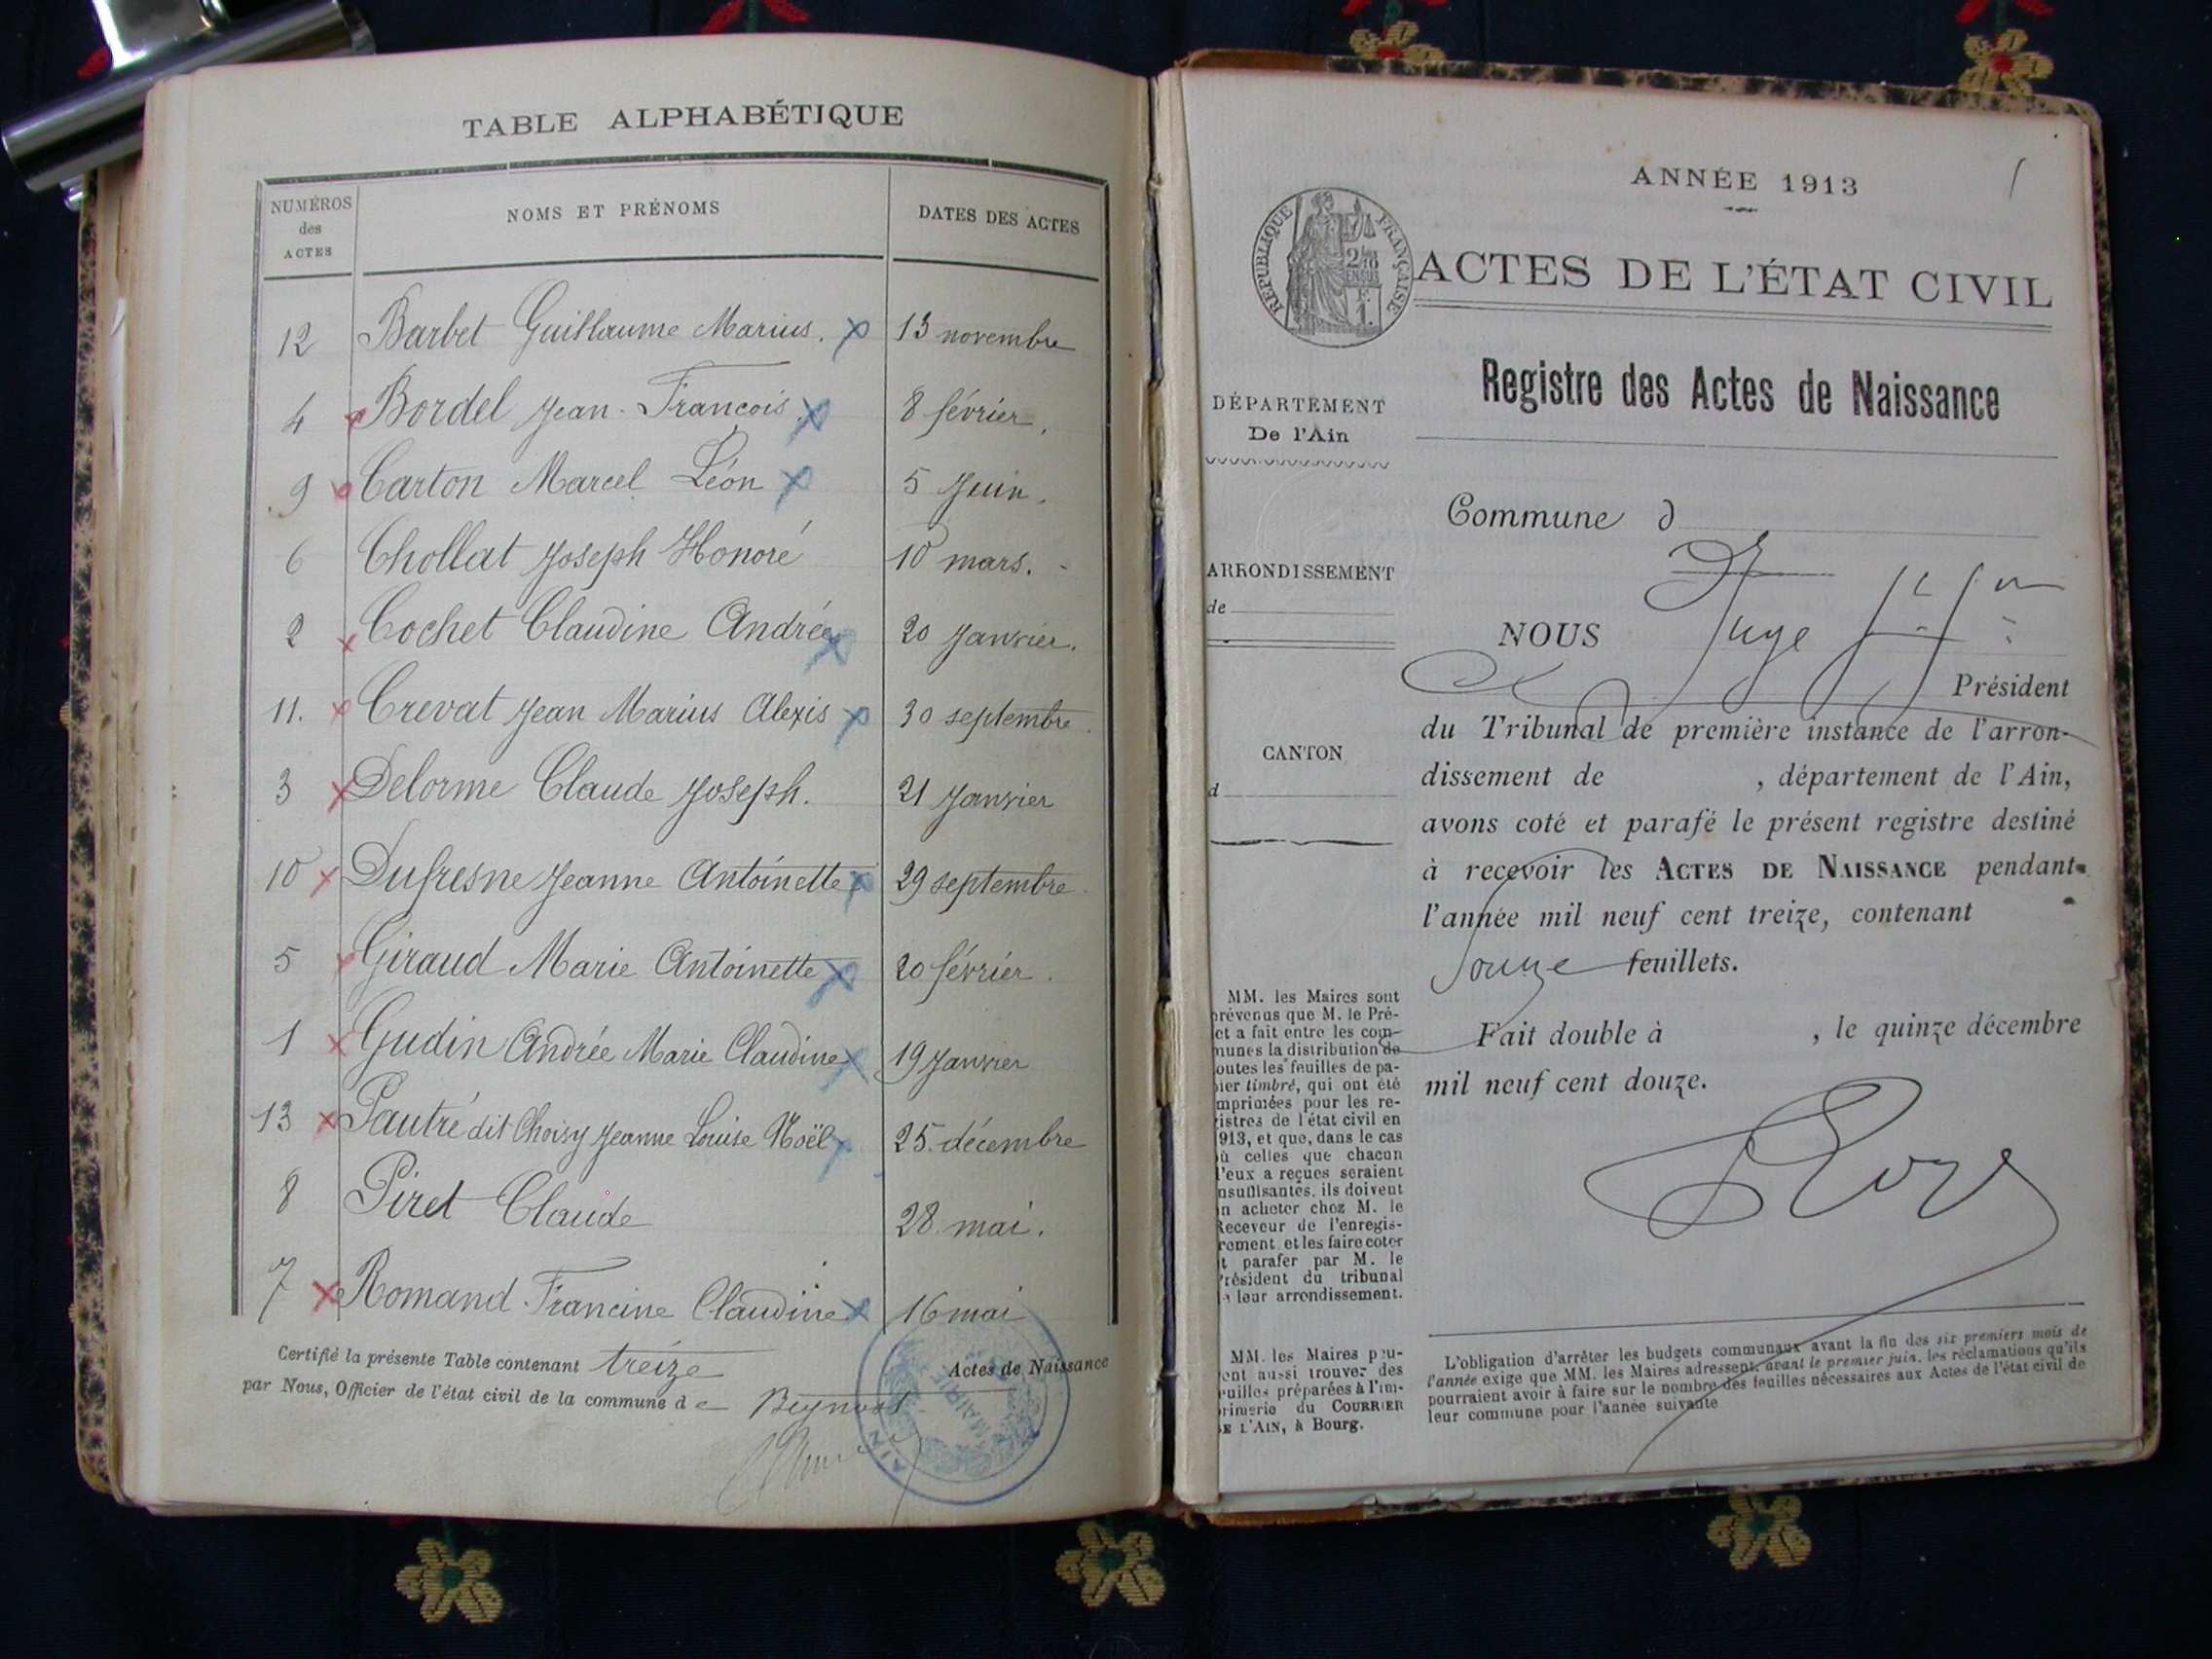 TABLE ALPHABÉTIQUE
NUMÉROS des ACTES NOMS ET PRÉNOMS DATES DES ACTES
12 Barbet Guillaume Marius. 13 novembre
4 Bordel Jean-François 8 février.
9 Carton Marcel Léon 5 Juin.
6 Chollat Joseph Honoré 10 mars.
2 Cochet Claudine Andrée 20 Janvier.
11. Crevat Jean Marius Alexis 30 septembre.
3 Delorme Claude Joseph. 21 Janvier
10 Dufresne Jeanne Antoinette 29 septembre.
5 Giraud Marie Antoinette 20 février.
1 Gudin Andrée Marie Claudine 19 Janvier
13 Pautré dit Choisy Jeanne Louise Noël 25 décembre
8 Piret Claude 28 mai.
7 Romand Francine Claudine 16 mai
Certifié la présente Table contenant treize Actes de Naissance
par Nous, Officier de l'état civil de la commune de Beynost
MAIRIE
AIN
ANNÉE 1913
1
RÉPUBLIQUE FRANÇAISE
ACTES DE L'ÉTAT CIVIL
Registre des Actes de Naissance
DÉPARTEMENT
De l'Ain
Commune d
ARRONDISSEMENT
de
NOUS Juge
Président
CANTON
d
du Tribunal de première instance de l'arron-
dissement de , département de l'Ain,
avons coté et parafé le présent registre destiné
à recevoir les ACTES DE NAISSANCE pendant
l'année mil neuf cent treize, contenant
feuillets.
Fait double à , le quinze décembre
mil neuf cent douze.
MM. les Maires sont
prévenus que M. le Pré-
fet a fait entre les com-
munes la distribution de
toutes les feuilles de pa-
pier timbré, qui ont été
imprimées pour les re-
gistres de l'état civil en
1913, et que, dans le cas
où celles que chacun
d'eux a reçues seraient
insuffisantes, ils doivent
en acheter chez M. le
Receveur de l'enregis-
trement et les faire coter
et parafer par M. le
Président du tribunal
de leur arrondissement.
MM. les Maires peu-
vent aussi trouver des
feuilles préparées à l'im-
primerie du COURRIER
DE L'AIN, à Bourg.
L'obligation d'arrêter les budgets communaux avant la fin des six premiers mois de
l'année exige que MM. les Maires adressent, avant le premier juin, les réclamations qu'ils
pourraient avoir à faire sur le nombre des feuilles nécessaires aux Actes de l'état civil de
leur commune pour l'année suivante